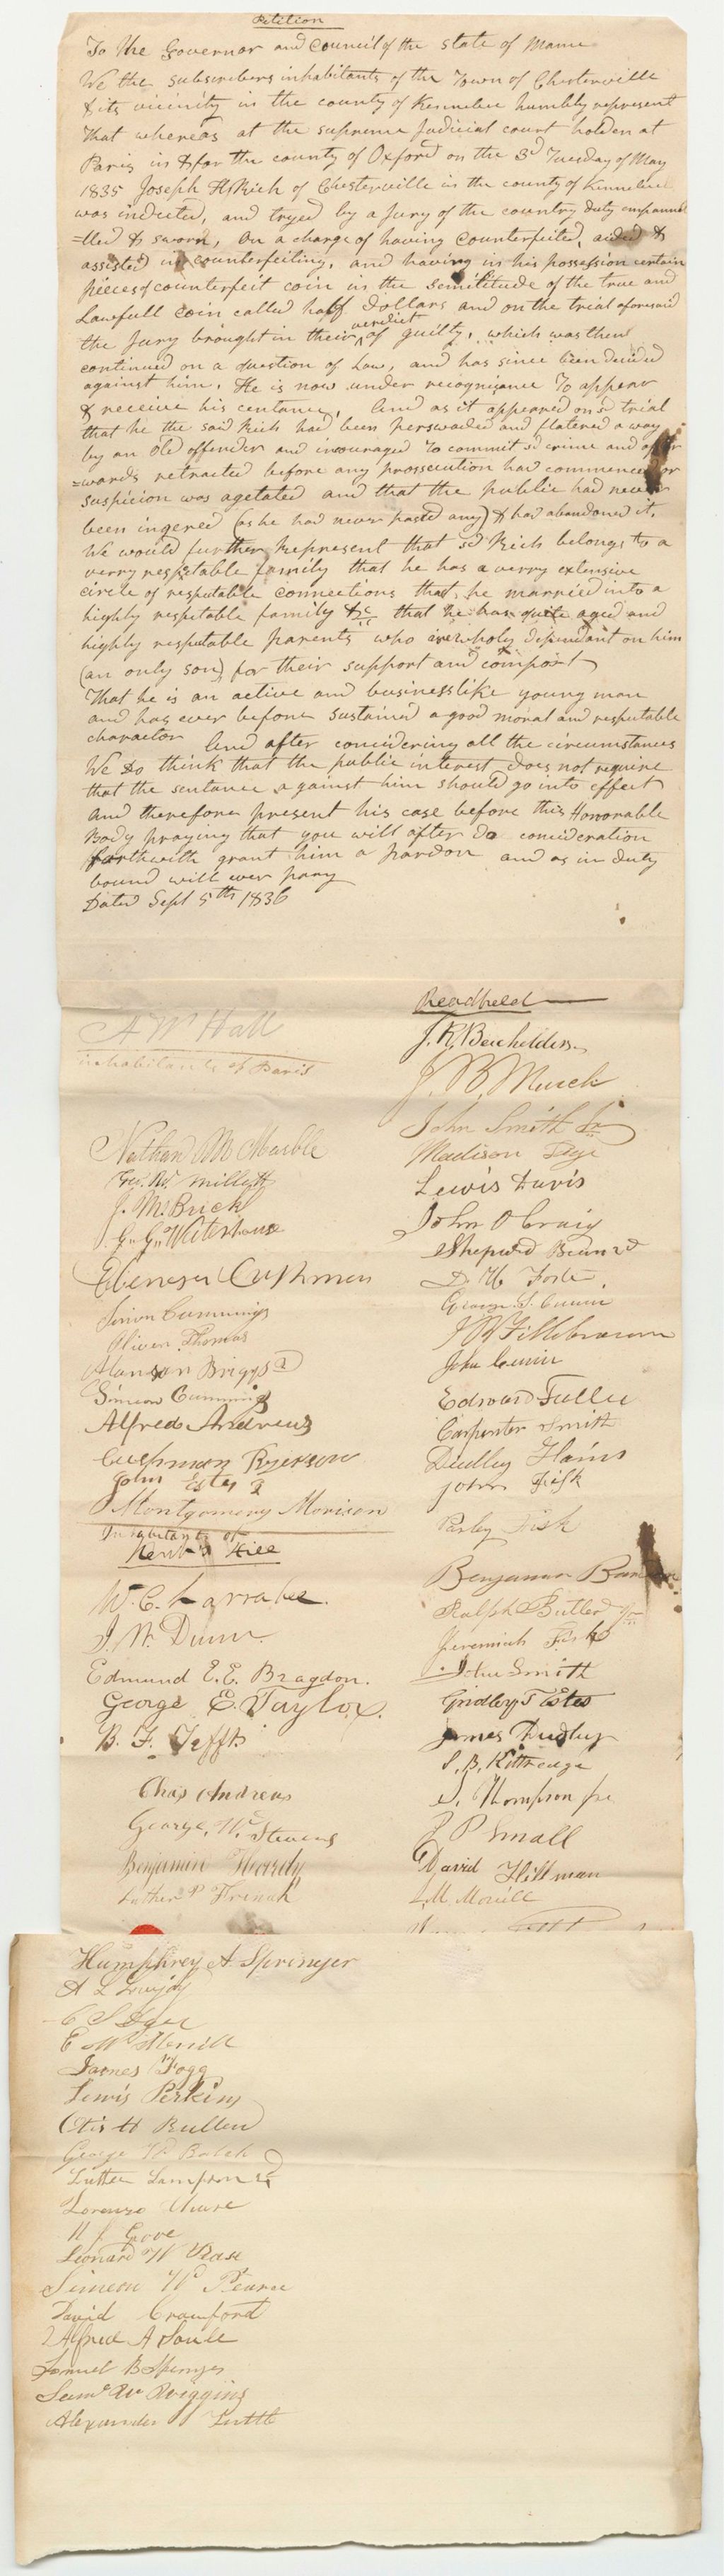 Petition
To the Governor and Council of the state of Maine
We the subscribers inhabitants of the Town of Chesterville
& its vicinity in the county of Kennebec humbly represent
That whereas at the supreme Judicial court holden at
Paris in & for the county of Oxford on the 3d Tuesday of May
1835 Joseph H Rich of Chesterville in the county of Kennebec
was indicted, and tryed by a Jury of the country duty empannel
=lled & sworn, On a charge of having Counterfeited, aided &
assisted in counterfeiting, and having in his possession certain
pieces of counterfeit coin in the semilitude of the true and
Lawfull coin called half dollars and on the trial aforesaid
the Jury brought in their verdict of guilty, which was then
continued on a question of Law, and has since been decided
against him. He is now under recognizance To appear
& receive his centance, And as it appeared on sd trial
that he the said Rich had been perswaded and flatered a way
by an old offender and incouraged to commit sd crime and after
=wards retracted before any prossecution had commenced or
suspicion was agetated and that the public had never
been ingered (as he had never passed any) & had abandoned it.
We would further Represent that sd Rich belongs to a
verry respitable family that he has a verry extensive
circle of resputable connections that he married into a
highly resputable family &c that he has quite aged and
highly resputable parents who are wholey dependant on him
(an only son) for their support and comfort
That he is an active and businesslike young man
and has ever before sustained a good moral and resputable
character And after concidering all the circumstances
We do think that the public interest does not require
that the sentance against him should go into effect
And therefore present his case before this Honorable
Body praying that you will after do concideration
forthwith grant him a pardon and as in duty
bound will ever pray
Dated Sept 5th 1836
A W Hall
inhabitants of Paris
Nathan M Marble
Geo. W. Millett
J. M. Brick
G. G. Waterhouse
Ebenezer Cushman
Simon Cummings
Oliver Thomas
Alanson Briggs 2d
Simeon Cummings
Alfred Andrews
Cushman Ryerson
John Estes 2
Montgomery Morison
Inhabitants of
Kent's Hill
W. C. Larrabee.
J. W. Dunn.
Edmund E. E. Bragdon.
George E. Taylor.
B. F. Tefft
Chas Andrews
George. W. Stevens
Benjamin Hoardy
Luther P French
Readfield
J. R. Bachelder
J. B. Murch
John Smith Jr
Madison Page
Lewis Davis
John O Craig
Shepard Bean 2d
D. H Foster.
George S. Currier
J B Fillebrown
John Currier
Edward Fuller
Carpenter Smith
Dudley Hains
John Fisk
Parley Fisk
Benjamin
Ralph Butler Jr
Jeremiah Fisk
John Smith
Gridley T Estes
James Dudley
S. B. Kittredge
S. Thompson Jr
J P Small
David Hillman
L M Morrill
Humphrey A Springer
A L Lovejoy
C S
E W Merrill
James Fogg
Lewis Perkins
Otis H Bullen
George W. Balch
Luther Sampson 2d
Lorenzo
H J Gove
Leonard W Rase
Simeon W Pearce
David Crawford
Alfred A Soule
Samuel B Springer
Saml W Wiggins
Alexander Tuttle